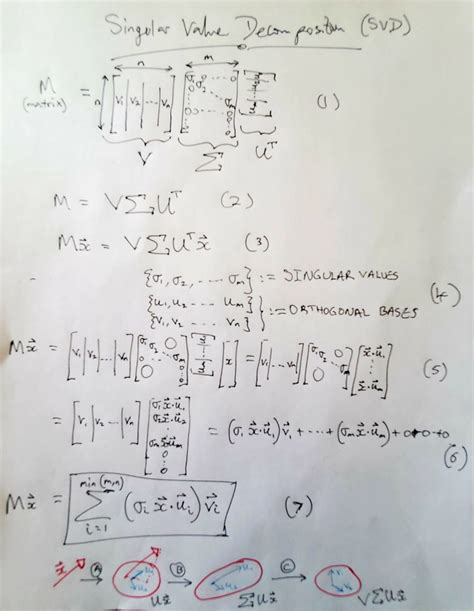 Singular Value Decomposition (SVD)
n m
M (matrix) = n [v₁ | v₂ | ... | vₙ] [σ₁ σ₂ ... σₘ 0 0 0] [u₁ u₂ ... uₘ] (1)
V Σ Uᵀ
M = VΣUᵀ (2)
Mx⃗ = VΣUᵀx⃗ (3)
{σ₁, σ₂, ---- σₘ} := SINGULAR VALUES
{u₁, u₂ --- uₘ} {v₁, v₂ --- vₙ} := ORTHOGONAL BASES (4)
Mx⃗ = [v₁ | v₂ | ... | vₙ] [σ₁ σ₂ 0 ... σₘ 0 0] [u₁ ... uₘ] [x] = [v₁ | v₂ ... | vₙ] [σ₁ σ₂ 0 ... σₘ 0] [x⃗·u⃗₁ ⋮ x⃗·u⃗ₘ] (5)
= [v₁ | v₂ ... | vₙ] [σ₁x⃗·u⃗₁ σ₂x⃗·u⃗₂ ⋮ σₘx⃗·u⃗ₘ 0 ⋮ 0] = (σ₁ x⃗·u⃗₁)v⃗₁ + ... + (σₘx⃗·u⃗ₘ) + 0 + 0 + 0 (6)
Mx⃗ = Σ_{i=1}^{min(m,n)} (σᵢ x⃗·u⃗ᵢ) v⃗ᵢ (7)
x⃗ A B C
Ux⃗ ΣUx⃗ VΣUx⃗